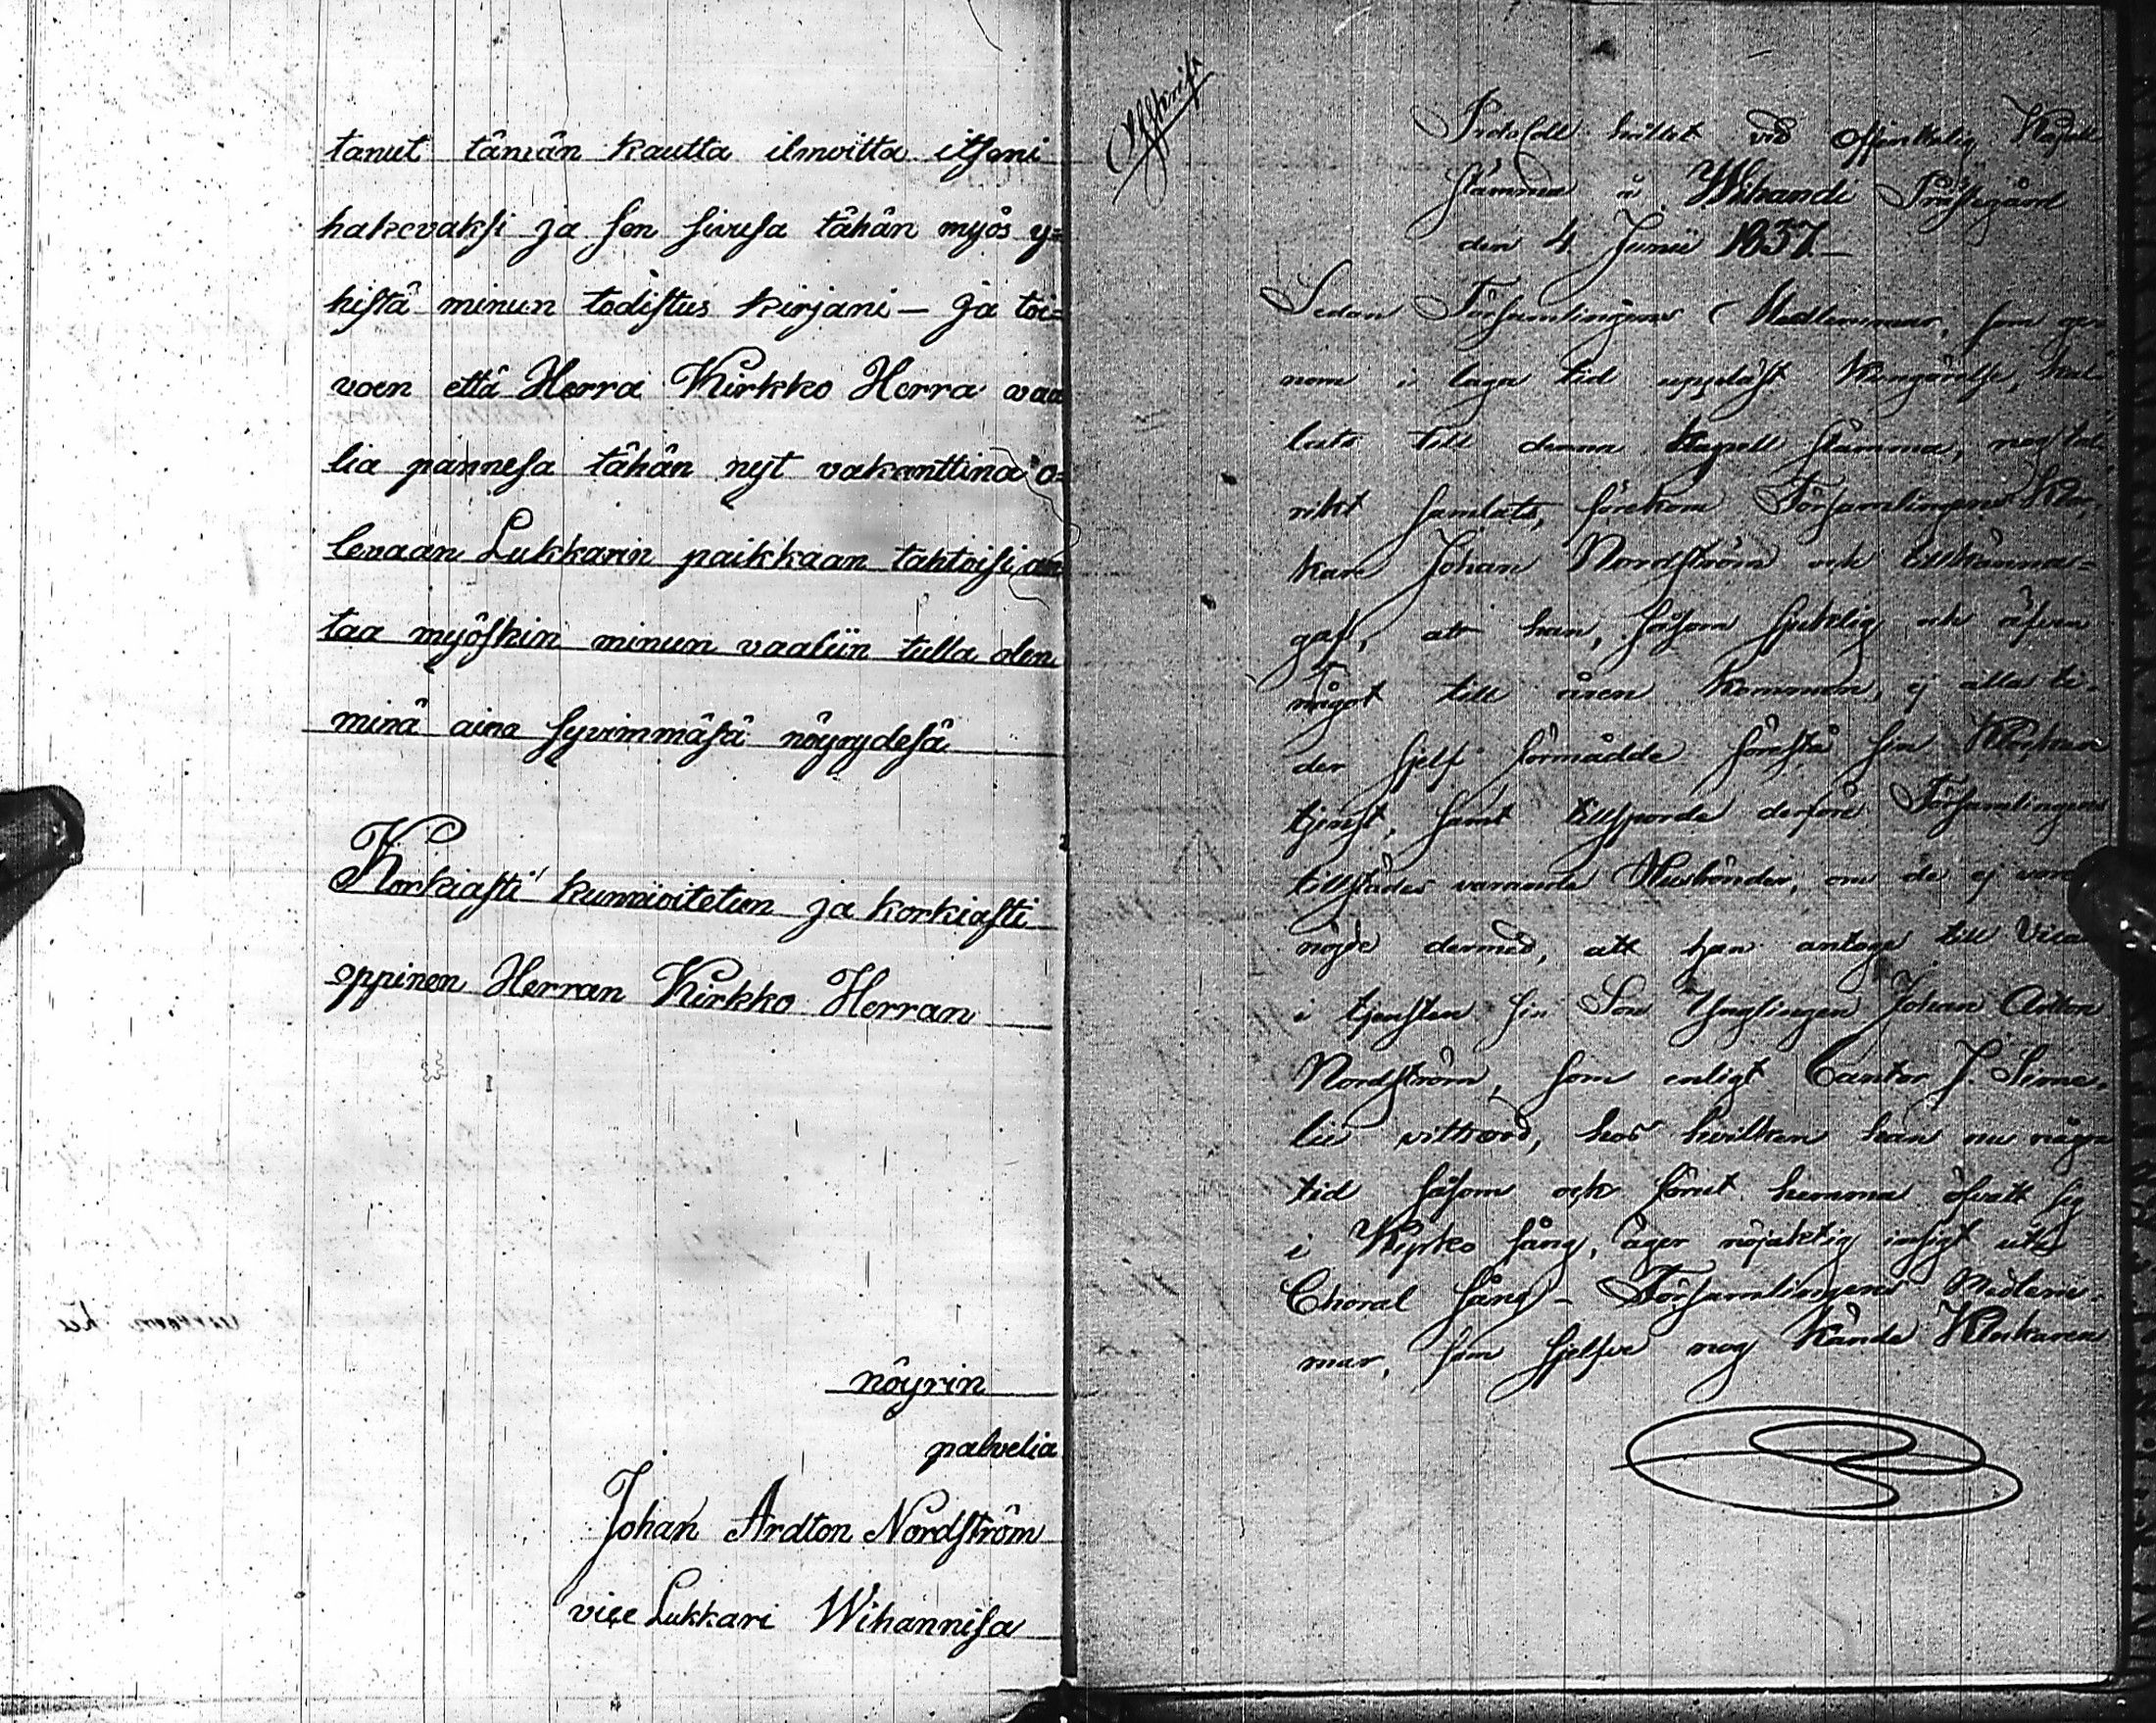 tanut tämän kautta ilmoitta itseni
hakevaksi ja sen sivusa tähän myös y=
histä minun todistus kirjani – Ja toi=
voen että Herra Kirkko Herra vaa
lia pannesa tähän nyt vakanttina o=
levaan Lukkarin paikkaan tahtoisi an
taa myöskin minun vaaliin tulla olen
minä aina syvimmäsä nöyrydesä
Korkiasti kunnioitetun ja korkiasti
oppinen Herran Kirkko Herran
nöyrin
palvelia
Johan Ardton Nordström
vice Lukkari Wihannisa
Afskrift
Protocoll hållet vid offentelig Kapell
stämma å Wihandi Prästegård
den 4 Junii 1837.–
Sedan Församlingens Medlemmar, som ge=
nom i laga tid uppläst Kungörelse, kal=
lats till denna Kapell stämma, nog tal=
rikt samlats, förekom Församlingens Kloc=
kare Johan Nordström och tillkänna=
gaf, att han, såsom sjuklig och äfven
något till åren kommen, ej alla ti=
der sjelf förmådde förestå sin Klockare
tjenst, samt tillsporde derföre Församlingens
tillstädes varande Husbönder, om de ej vore
nöjde dermed, att han antoge till Vicar
i tjensten sin Son Ynglingen Johan Ardton
Nordström, som enligt Cantor J. Sime=
lii vittsord, hos hvilken han nu någon
tid såsom och förut hemma öfvatt sig
i Kyrko sång, äger nöjaktig insigt uti
Choral sång – Församlingens Medlem=
mar, som sjelfve nog kände Klockaren